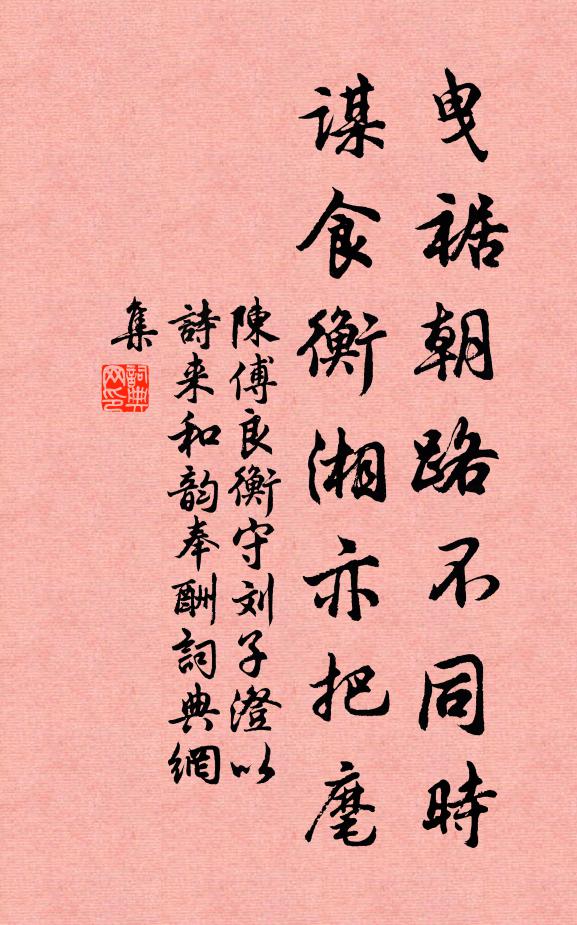 曳裾朝路不同時
謀食衡湘亦把麾
陳傅良衡守刘子澄以
詩来和韵奉酬詞典網
集
詞典网印